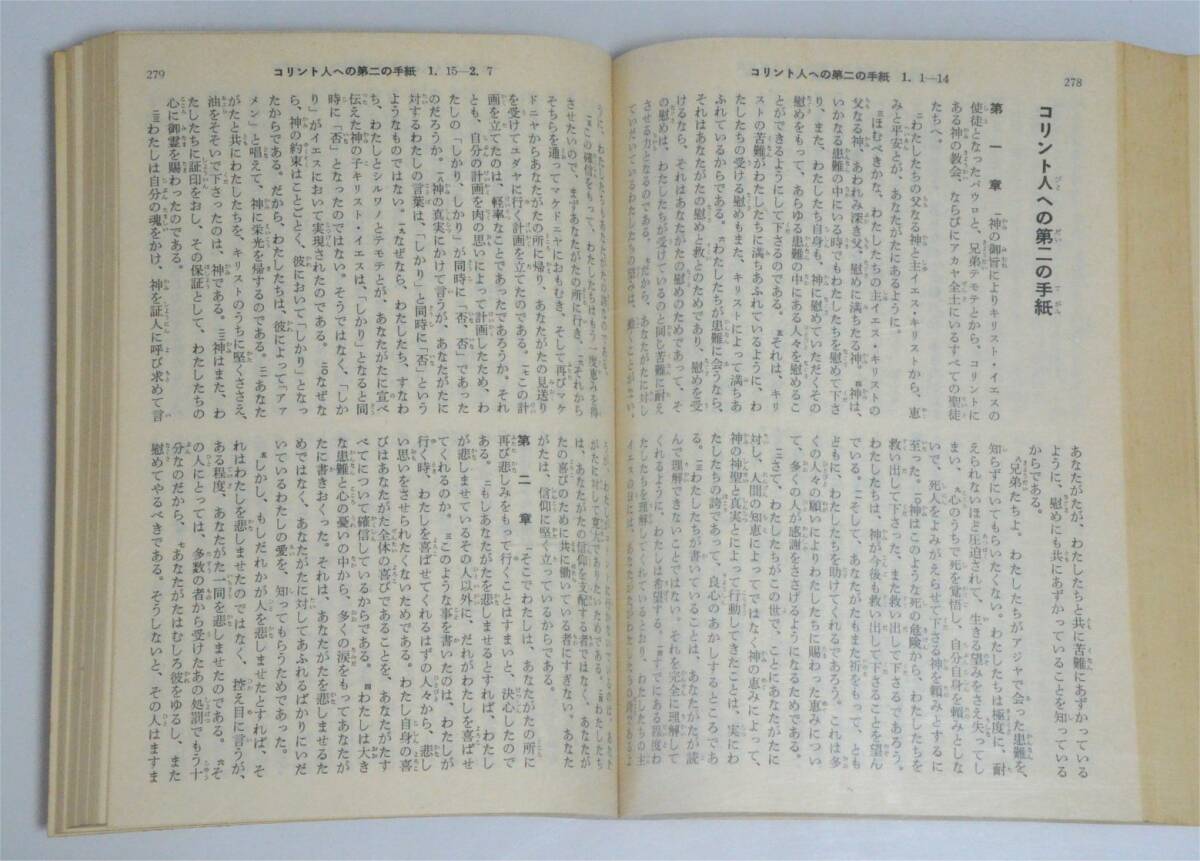 278
コリント人への第二の手紙 1. 1—14
コリント人への第二の手紙
第一章 一神の御旨によりキリスト・イエスの
使徒となったパウロと、兄弟テモテとから、コリントに
ある神の教会、ならびにアカヤ全土にいるすべての聖徒
たちへ。
二わたしたちの父なる神と主イエス・キリストから、恵
みと平安とが、あなたがたにあるように。
三ほむべきかな、わたしたちの主イエス・キリストの
父なる神、あわれみ深き父、慰めに満ちたる神。四神は、
いかなる患難の中にいる時でもわたしたちを慰めて下さ
り、また、わたしたち自身も、神に慰めていただくその
慰めをもって、あらゆる患難の中にある人々を慰めるこ
とができるようにして下さるのである。五それは、キリ
ストの苦難がわたしたちに満ちあふれているように、わ
たしたちの受ける慰めもまた、キリストによって満ちあ
ふれているからである。六わたしたちが患難に会うなら、
それはあなたがたの慰めと救とのためであり、慰めを受
けるなら、それはあなたがたの慰めのためであって、そ
の慰めは、わたしたちが受けているのと同じ苦難に耐え
させる力となるのである。七だから、あなたがたに対し
ていだいているわたしたちの望みは、動くことがない。
あなたがたが、わたしたちと共に苦難にあずかっている
ように、慰めにも共にあずかっていることを知っている
からである。
八兄弟たちよ。わたしたちがアジヤで会った患難を、
知らずにいてもらいたくない。わたしたちは極度に、耐
えられないほど圧迫されて、生きる望みをさえ失ってし
まい、九心のうちで死を覚悟し、自分自身を頼みとしな
いで、死人をよみがえらせて下さる神を頼みとするに
至った。一〇神はこのような死の危険から、わたしたちを
救い出して下さった、また救い出して下さるであろう。
わたしたちは、神が今後も救い出して下さることを望ん
でいる。そして、あなたがたもまた祈をもって、ともど
もに、わたしたちを助けてくれるであろう。これは多
くの人々の願いによりわたしたちに賜わった恵みについ
て、多くの人が感謝をささげるようになるためである。
一二さて、わたしたちがこの世で、ことにあなたがたに
対し、人間の知恵によってではなく神の恵みによって、
神の神聖と真実とによって行動してきたことは、実にわ
たしたちの誇であって、良心のあかしするところであ
る。一三わたしたちが書いていることは、あなたがたが読
んで理解できないことではない。それを完全に理解して
くれるように、わたしは希望する。一四すでにある程度わ
たしたちを理解してくれているとおり、わたしたちの主
279
コリント人への第二の手紙 1. 15—2. 7
一五この確信をもって、わたしたちはもう一度恵みを得
させたいので、まずあなたがたの所に行き、一六それから
そちらを通ってマケドニヤにおもむき、そして再びマケ
ドニヤからあなたがたの所に帰り、あなたがたの見送り
を受けてユダヤに行く計画を立てたのである。一七この計
画を立てたのは、軽率なことであったであろうか。それ
とも、自分の計画を肉の思いによって計画したため、わ
たしの「しかり、しかり」が同時に「否、否」であった
のだろうか。一八神の真実にかけて言うが、あなたがたに
対するわたしの言葉は、「しかり」と同時に「否」という
ようなものではない。一九なぜなら、わたしたち、すなわ
ち、わたしとシルワノとテモテとが、あなたがたに宣べ
伝えた神の子キリスト・イエスは、「しかり」となると同
時に「否」となったのではない。そうではなく、「しか
り」がイエスにおいて実現されたのである。二〇なぜな
ら、神の約束はことごとく、彼において「しかり」となっ
たからである。だから、わたしたちは、彼によって「アァ
メン」と唱えて、神に栄光を帰するのである。二一あなた
がたと共にわたしたちを、キリストのうちに堅くささえ、
油をそそいで下さったのは、神である。二二神はまた、わ
たしたちに証印をおし、その保証として、わたしたちの
心に御霊を賜わったのである。
二三わたしは自分の魂をかけ、神を証人に呼び求めて言
がたに対して寛大でありたいためである。二四わたしたち
は、あなたがたの信仰を支配する者ではなく、あなたが
たの喜びのために共に働いている者にすぎない。あなた
がたは、信仰に堅く立っているからである。
第二章 一そこでわたしは、あなたがたの所に
再び悲しみをもって行くことはすまいと、決心したので
ある。二もしあなたがたを悲しませるとすれば、わたし
が悲しませているその人以外に、だれがわたしを喜ばせ
てくれるのか。三このような事を書いたのは、わたしが
行く時、わたしを喜ばせてくれるはずの人々から、悲し
い思いをさせられたくないためである。わたし自身の喜
びはあなたがた全体の喜びであることを、あなたがたす
べてについて確信しているからである。四わたしは大き
な患難と心の憂いの中から、多くの涙をもってあなたが
たに書きおくった。それは、あなたがたを悲しませるた
めではなく、あなたがたに対してあふれるばかりにいだ
いているわたしの愛を、知ってもらうためであった。
五しかし、もしだれかが人を悲しませたとすれば、そ
れはわたしを悲しませたのではなく、控え目に言うが、
ある程度、あなたがた一同を悲しませたのである。六そ
の人にとっては、多数の者から受けたあの処罰でもう十
分なのだから、七あなたがたはむしろ彼をゆるし、また
慰めてやるべきである。そうしないと、その人はますま